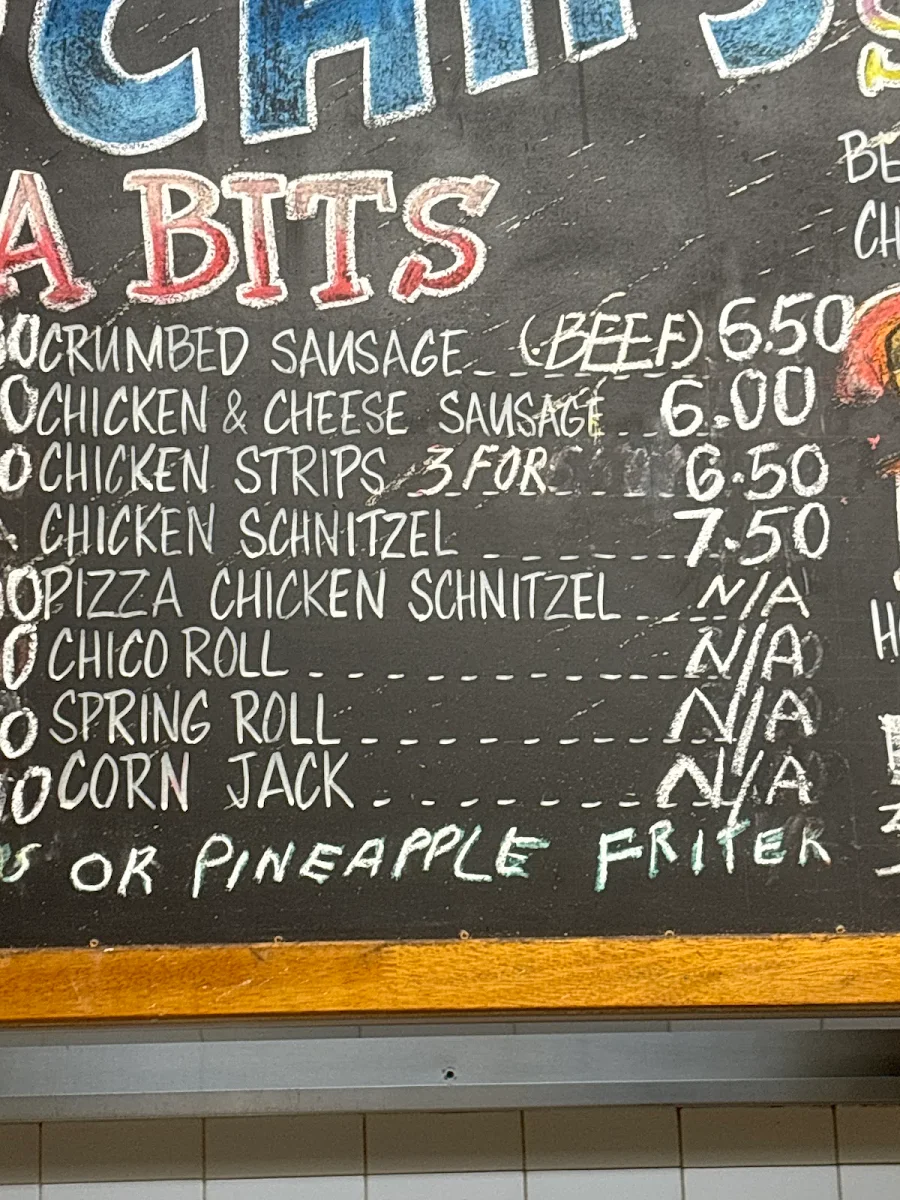 CHIPS
A BITS
CRUMBED SAUSAGE (BEEF) 6.50
CHICKEN & CHEESE SAUSAGE 6.00
CHICKEN STRIPS 3 FOR 6.50
CHICKEN SCHNITZEL 7.50
PIZZA CHICKEN SCHNITZEL N/A
CHICO ROLL N/A
SPRING ROLL N/A
CORN JACK N/A
OR PINEAPPLE FRITER
BE
CH